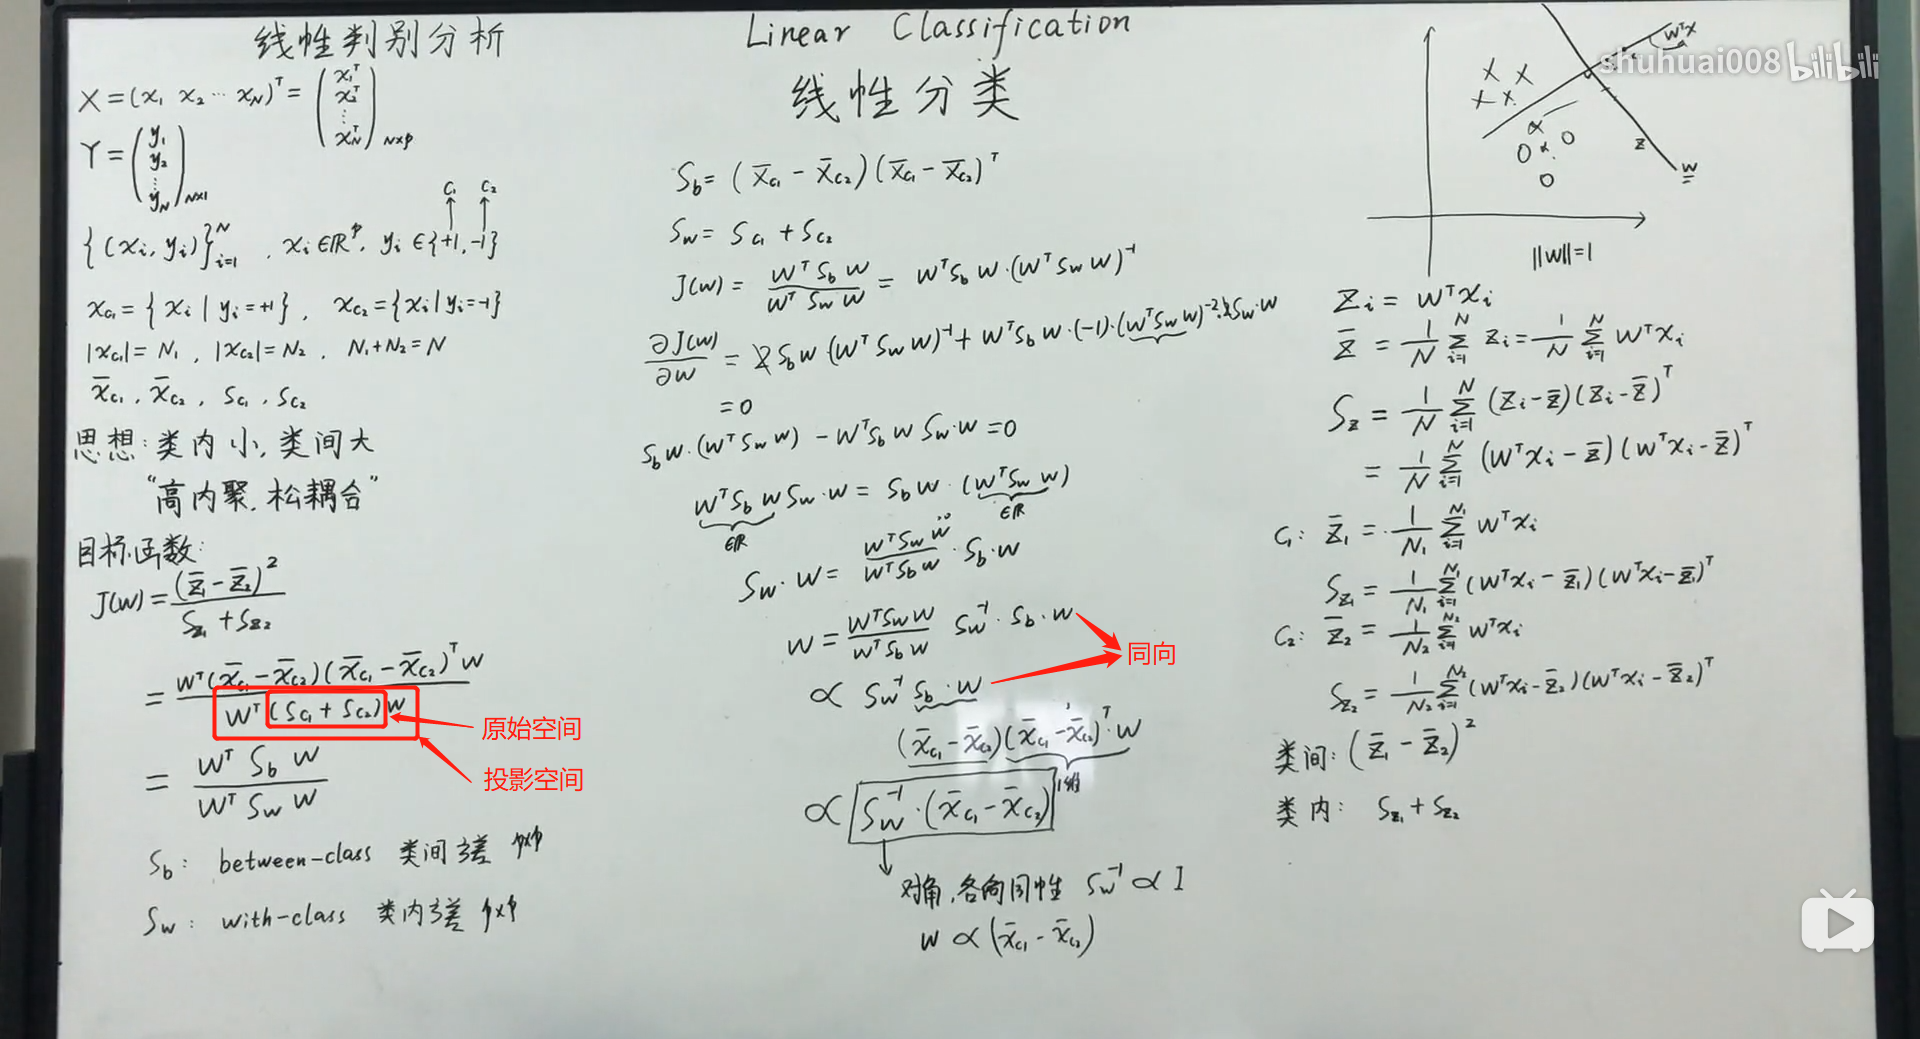 线性判别分析
X = (x₁ x₂ ⋯ x_N)ᵀ = (x₁ᵀ x₂ᵀ ⋮ x_Nᵀ)_{N×p}
Y = (y₁ y₂ ⋮ y_N)_{N×1}
C₁ C₂
{(xᵢ, yᵢ)}_{i=1}^N , xᵢ ∈ ℝᵖ, yᵢ ∈ {+1, -1}
x_{c₁} = {xᵢ | yᵢ = +1}, x_{c₂} = {xᵢ | yᵢ = -1}
|x_{c₁}| = N₁ , |x_{c₂}| = N₂ , N₁ + N₂ = N
x̄_{c₁}, x̄_{c₂}, S_{c₁}, S_{c₂}
思想: 类内小, 类间大
“高内聚, 松耦合”
目标函数:
J(w) = (z̄₁ - z̄₂)² / (S_{z₁} + S_{z₂})
= wᵀ(x̄_{c₁} - x̄_{c₂})(x̄_{c₁} - x̄_{c₂})ᵀw / wᵀ(S_{c₁} + S_{c₂})w
原始空间
投影空间
= wᵀ S_b w / wᵀ S_w w
S_b: between-class 类间方差 p×p
S_w: with-class 类内方差 p×p
Linear Classification
线性分类
S_b = (x̄_{c₁} - x̄_{c₂})(x̄_{c₁} - x̄_{c₂})ᵀ
S_w = S_{c₁} + S_{c₂}
J(w) = wᵀ S_b w / wᵀ S_w w = wᵀ S_b w · (wᵀ S_w w)⁻¹
∂J(w)/∂w = 2 S_b w (wᵀ S_w w)⁻¹ + wᵀ S_b w · (-1) · (wᵀ S_w w)⁻² · 2 S_w · w
= 0
S_b w · (wᵀ S_w w) - wᵀ S_b w S_w · w = 0
wᵀ S_b w S_w · w = S_b w · (wᵀ S_w w)
∈ℝ ∈ℝ
S_w · w = wᵀ S_w w / wᵀ S_b w · S_b · w
w = wᵀ S_w w / wᵀ S_b w S_w⁻¹ · S_b · w
同向
∝ S_w⁻¹ S_b · w
(x̄_{c₁} - x̄_{c₂})(x̄_{c₁} - x̄_{c₂})ᵀ · w
1维
∝ S_w⁻¹ · (x̄_{c₁} - x̄_{c₂})
对角, 各向同性 S_w⁻¹ ∝ I
w ∝ (x̄_{c₁} - x̄_{c₂})
shuhuai008 bilibili
wᵀx
z
w
||w|| = 1
zᵢ = wᵀxᵢ
z̄ = 1/N ∑_{i=1}^N zᵢ = 1/N ∑_{i=1}^N wᵀxᵢ
S_z = 1/N ∑_{i=1}^N (zᵢ - z̄)(zᵢ - z̄)ᵀ
= 1/N ∑_{i=1}^N (wᵀxᵢ - z̄)(wᵀxᵢ - z̄)ᵀ
C₁: z̄₁ = 1/N₁ ∑_{i=1}^{N₁} wᵀxᵢ
S_{z₁} = 1/N₁ ∑_{i=1}^{N₁} (wᵀxᵢ - z̄₁)(wᵀxᵢ - z̄₁)ᵀ
C₂: z̄₂ = 1/N₂ ∑_{i=1}^{N₂} wᵀxᵢ
S_{z₂} = 1/N₂ ∑_{i=1}^{N₂} (wᵀxᵢ - z̄₂)(wᵀxᵢ - z̄₂)ᵀ
类间: (z̄₁ - z̄₂)²
类内: S_{z₁} + S_{z₂}